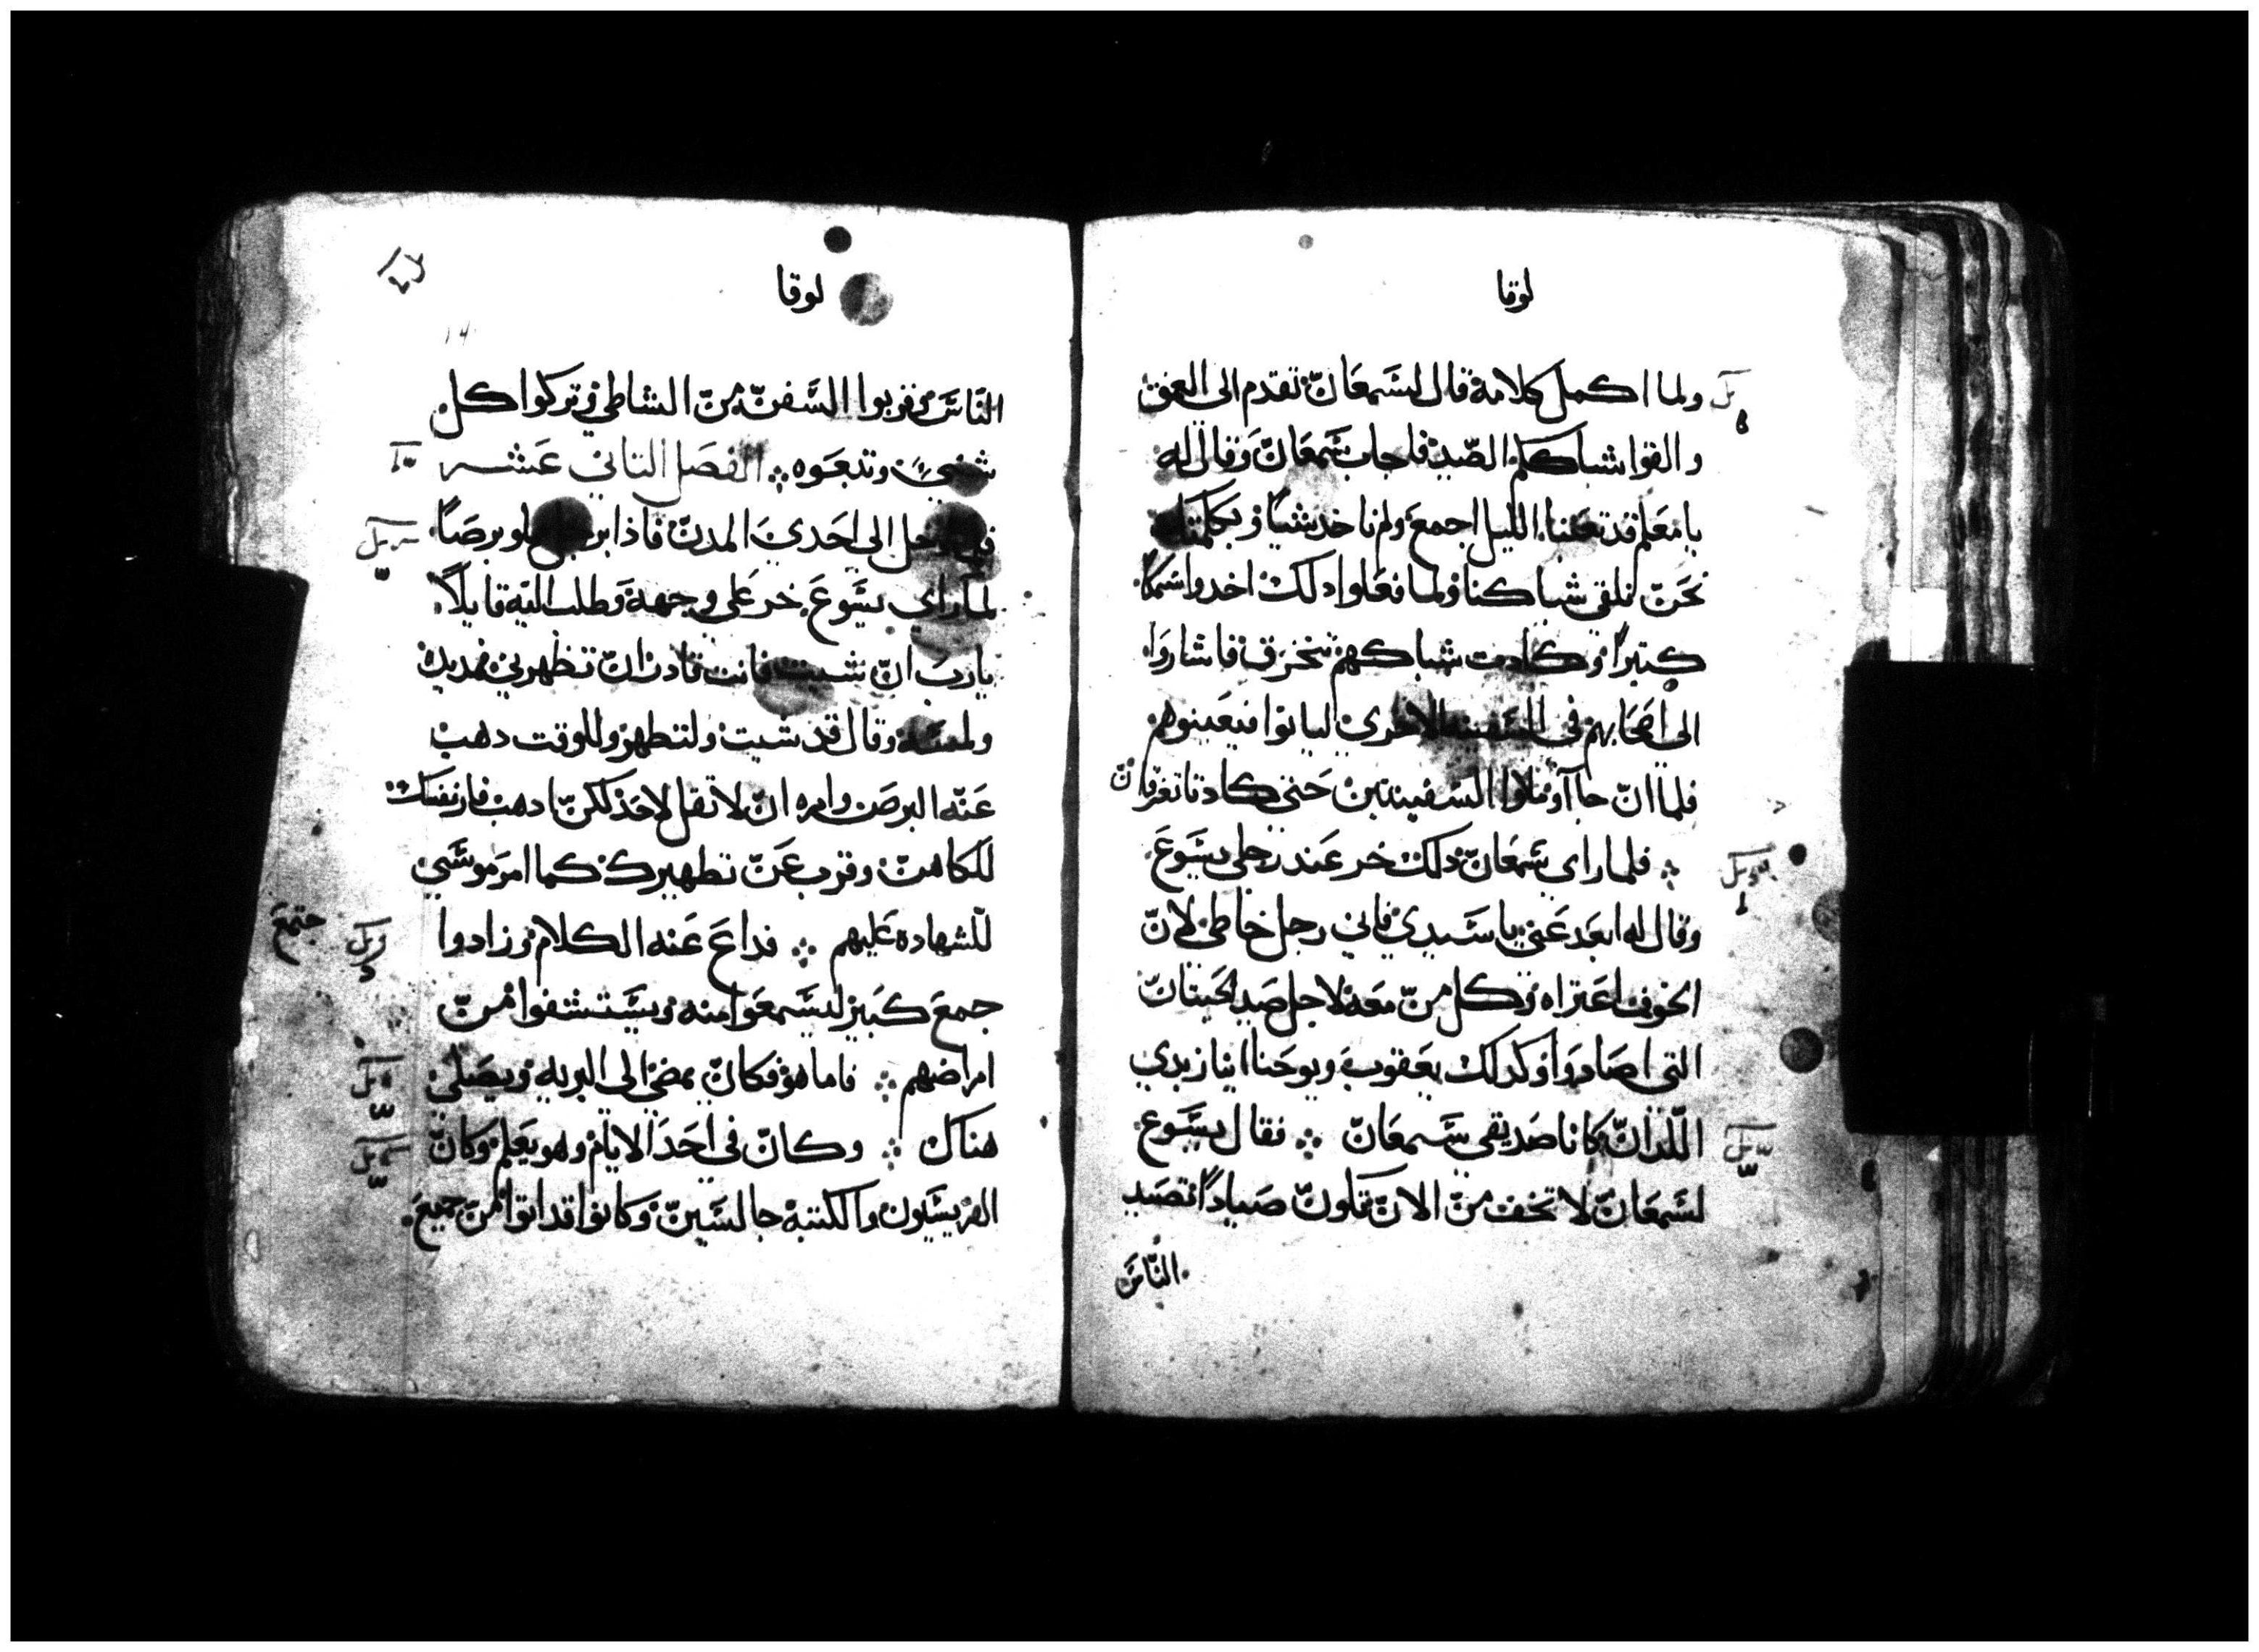 لوقا
ولما اكمل كلامه قال لسمعان تقدم الى العمق
والقوا شباككم الصيد فاجاب سمعان وقال له
يا معلم قد تعبنا الليل اجمع ولم ناخد شيا وبكلمتك
نحن نلقي شباكنا ولما فعلوا دلك اخدوا سمكا
كتيرا وكادت شباكهم تنخرق فاشاروا
الى اصحابهم في السفينه الاخري لياتوا فيعينوهم
فلما ان جاآو ملاوا السفينتين حتي كادتا تغرقان
فلما راي سمعان دلك خر عند رجلي يسوع
وقال له ابعد عني يا سيدي فاني رجل خاطي لان
الخوف اعتراه وكل من معه لاجل صيد الحيتان
التي اصادوا وكدلك يعقوب ويوحنا ابنا زبدي
اللدان كانا صديقي سمعان فقال يسوع
لسمعان لا تخف من الان تكون صيادا تصيد
الناس
لوقا
الناس وقربوا السفن من الشاطي وتركوا كل
شي وتبعوه الفصل التاني عشر
دخل الى احدي المدن فاذا برجل مملو برصا
لما راي يسوع خر علي وجهه وطلب اليه قايلا
يا رب ان شيت فانت قادر ان تطهرني فمد يده
ولمسه وقال قد شيت ولتطهر وللوقت دهب
عنه البرص وامره ان لا تقل لاحد لكن ادهب فار نفسك
للكاهن وقرب عن تطهيرك كما امر موسي
للشهاده عليهم فداع عنه الكلام وزادوا
جمع كبير ليسمعوا منه ويستشفوا من
امراضهم فاما هو فكان يمضي الى البريه ويصلي
هناك وكان في احد الايام وهو يعلم وكان
الفريسيون والكتبه جالسين وكانوا قد اتوا من جميع